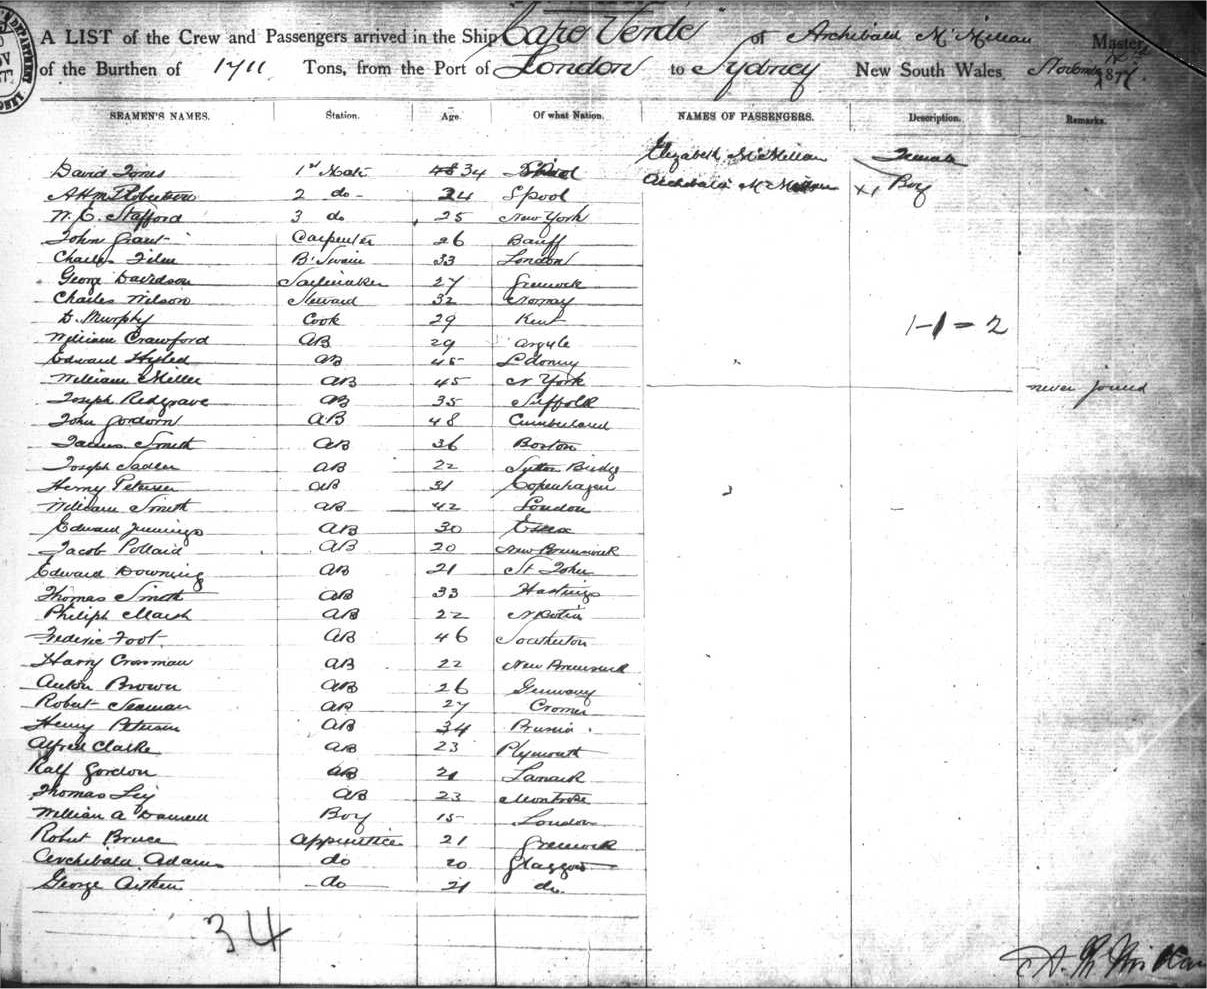 A LIST of the Crew and Passengers arrived in the Ship Cape Verde of Archibald McMillan Master
of the Burthen of 1711 Tons, from the Port of London to Sydney New South Wales, 187
SEAMEN'S NAMES. Station. Age. Of what Nation. NAMES OF PASSENGERS. Description. Remarks.
Elizabeth McMillan Female
David Jones 1st Mate 34
Archibald McMillan Boy
Robertson 2 do 24 Spool
W. C. Stafford 3 do 25 New York
John Grant Carpenter 26 Banff
Charles B'Swain 33 London
George Davidson Sailmaker 27 Greenock
Charles Wilson Steward 32 Norway
D. Murphy Cook 29 Kent
1-1=2
William Crawford AB 29 Argyle
Edward AB 45 L'donny
William Miller AB 45 N York never joined
Joseph Redgrave AB 35 Suffolk
John Gordorn AB 48 Cumberland
James Smith AB 36 Boston
Joseph Sadler AB 22 Sutton Bridg
Henry Petersen AB 31 Copenhagen
William Smith AB 42 London
Edward Jennings AB 30 Essex
Jacob Pollard AB 20 New Brunswick
Edward Downing AB 21 St John
Thomas Smith AB 33 Hastings
Philiph Marsh AB 22 N Scotia
Frederic Foot AB 46
Harry Crossman AB 22 New Brunswick
Anton Brown AB 26 Germany
Robert Seaman AB 27 Cromer
Henry Petersen AB 34 Prussia
Alfred Clarke AB 23 Plymouth
Ralf Gordon AB 21 Lanark
Thomas AB 23 Montrose
William A Boy 15 London
Robert Bruce Apprentice 21 Greenock
Archibald Adams do 20 Glasgow
George Aitken do 21 do
34